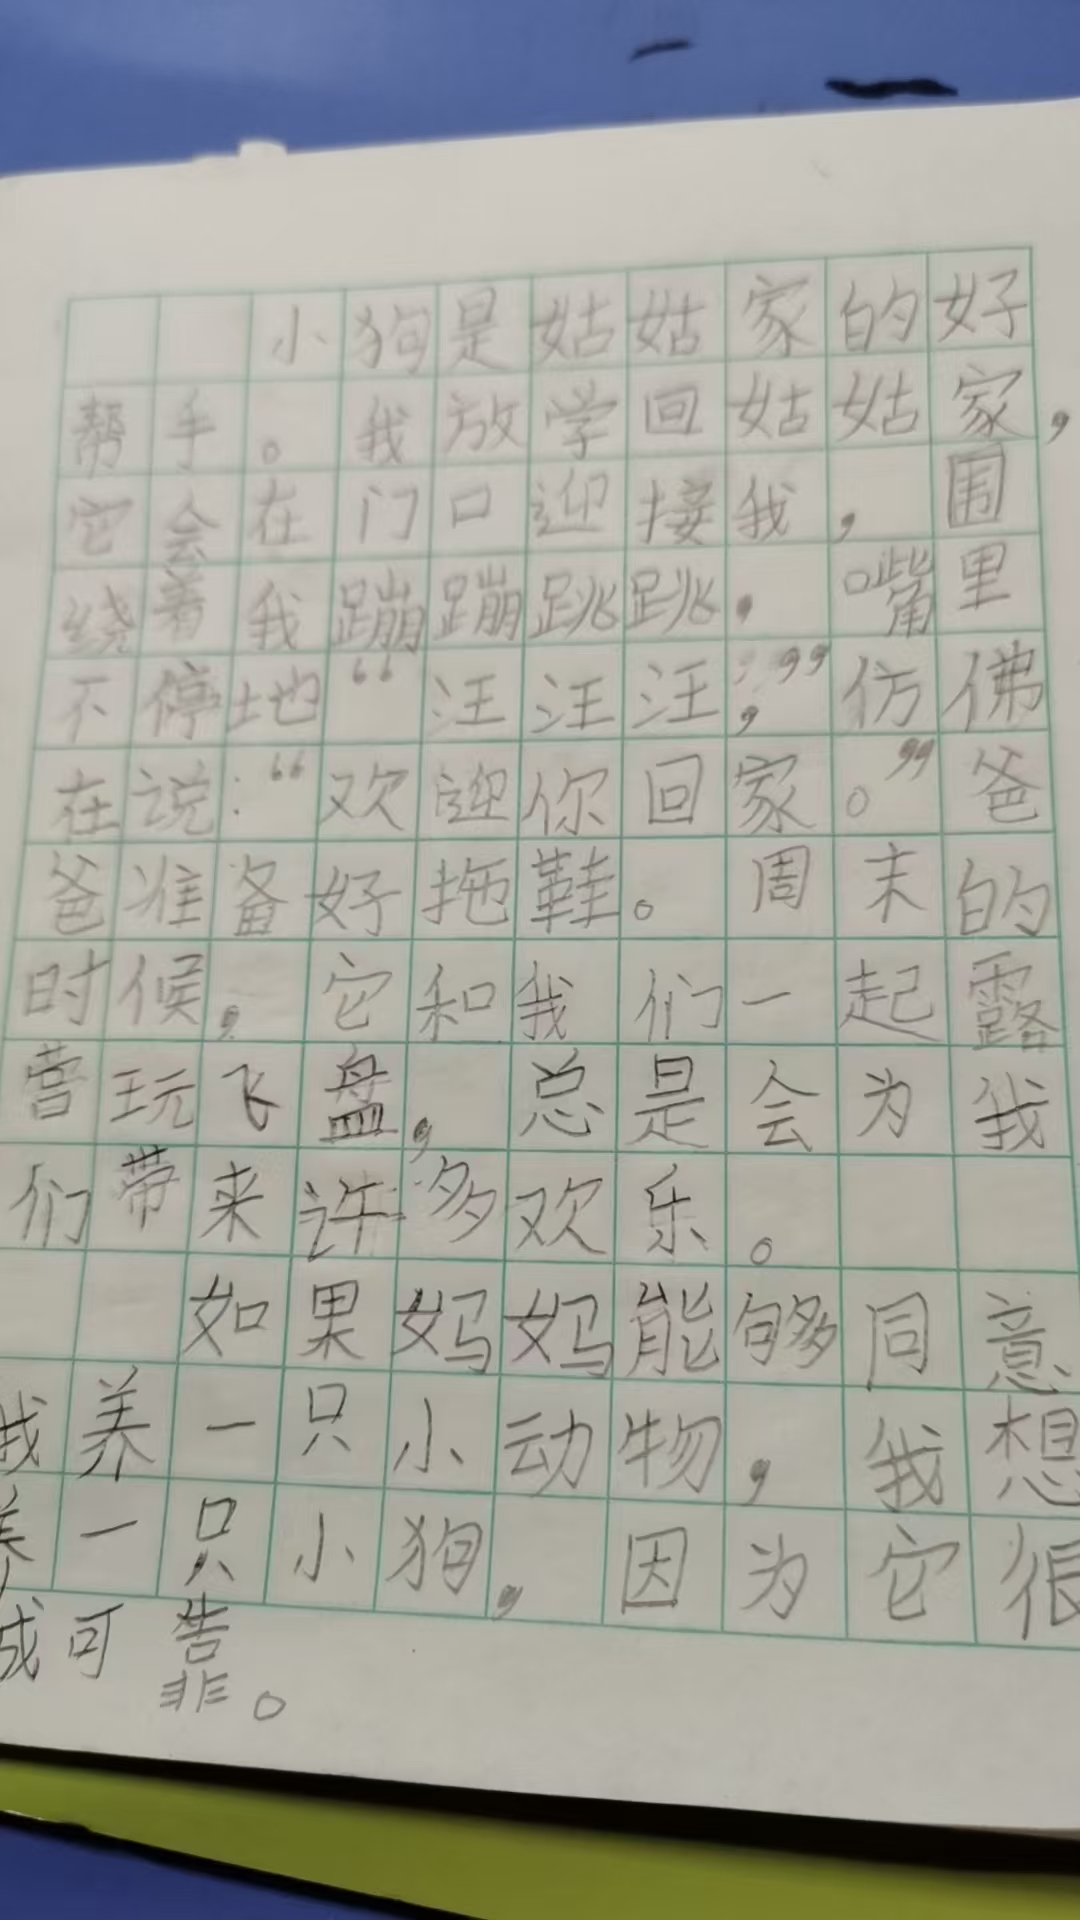 小狗是姑姑家的好
帮手。我放学回姑姑家，
它会在门口迎接我，围
绕着我蹦蹦跳跳，嘴里
不停地“汪汪汪，”仿佛
在说：“欢迎你回家。”爸
爸准备好拖鞋。周末的
时候，它和我们一起露
营玩飞盘，总是会为我
们带来许多欢乐。
如果妈妈能够同意
我养一只小动物，我想
养一只小狗，因为它很
诚可靠。